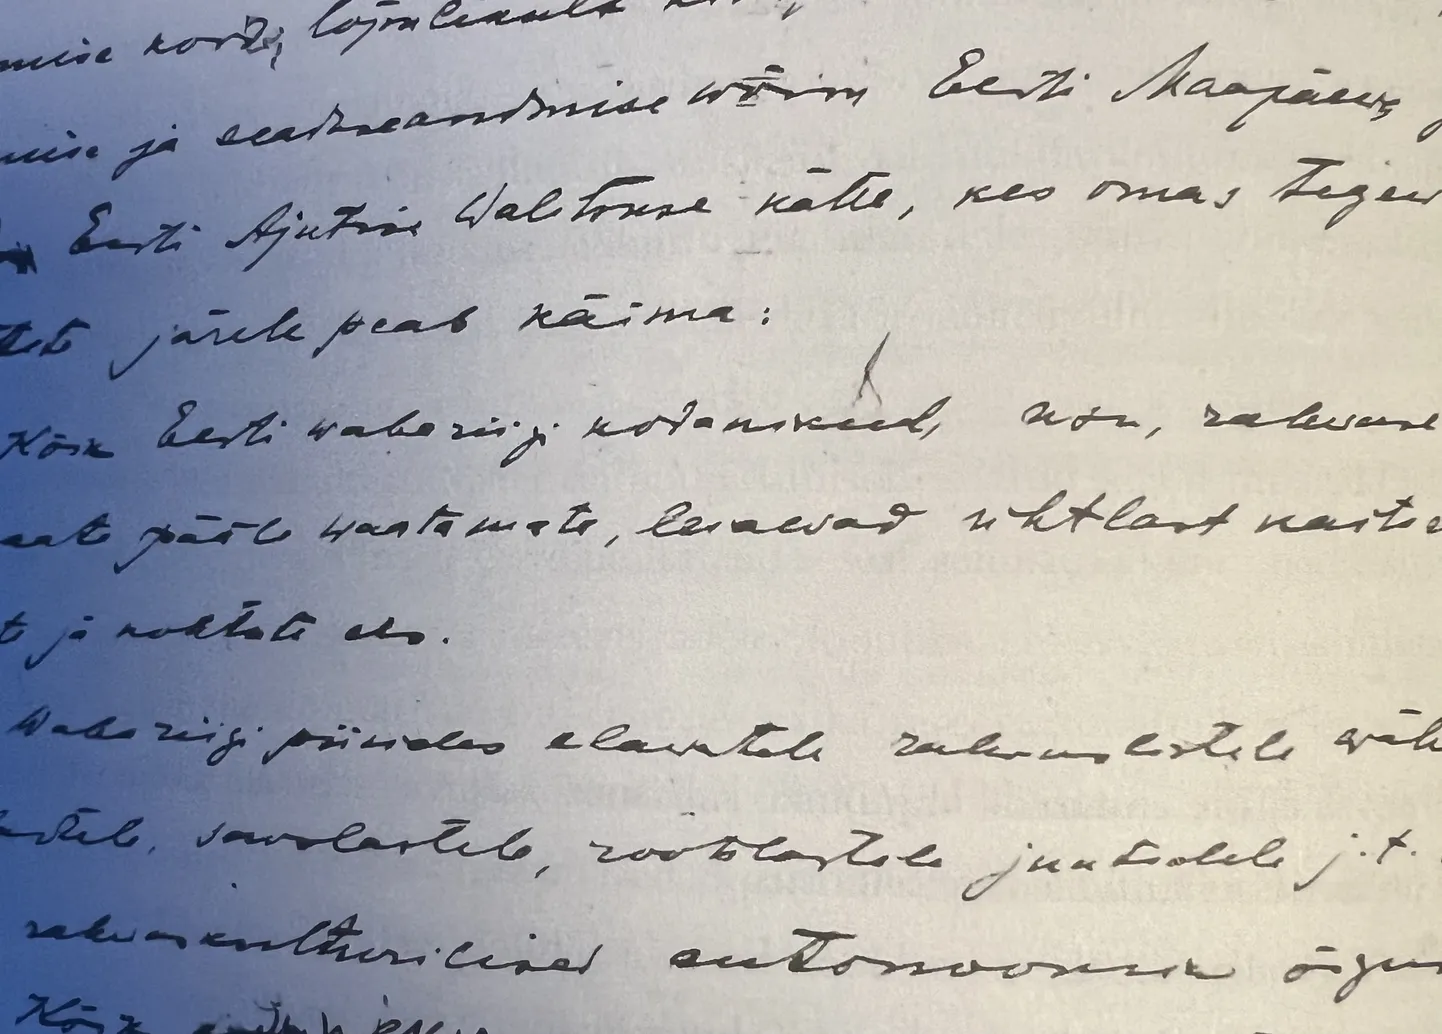 mise kord,
mise ja seadusandmise wõim Eesti Maapäewa
Eesti Ajutise Walitsuse kätte, kes omas tegew
järele peab käima:
Kõik Eesti wabariigi kodanikud, usu, rahwuse
pääle waatamata, leiawad ühtlast kaitset
ja kohtute ees.
Wabariigi piirides elawatele rahwuslistele wäh
lastele, sakslastele, rootslastele juutidele j.t.
rahwuskultuurilised autonoomia õigus
Kõik